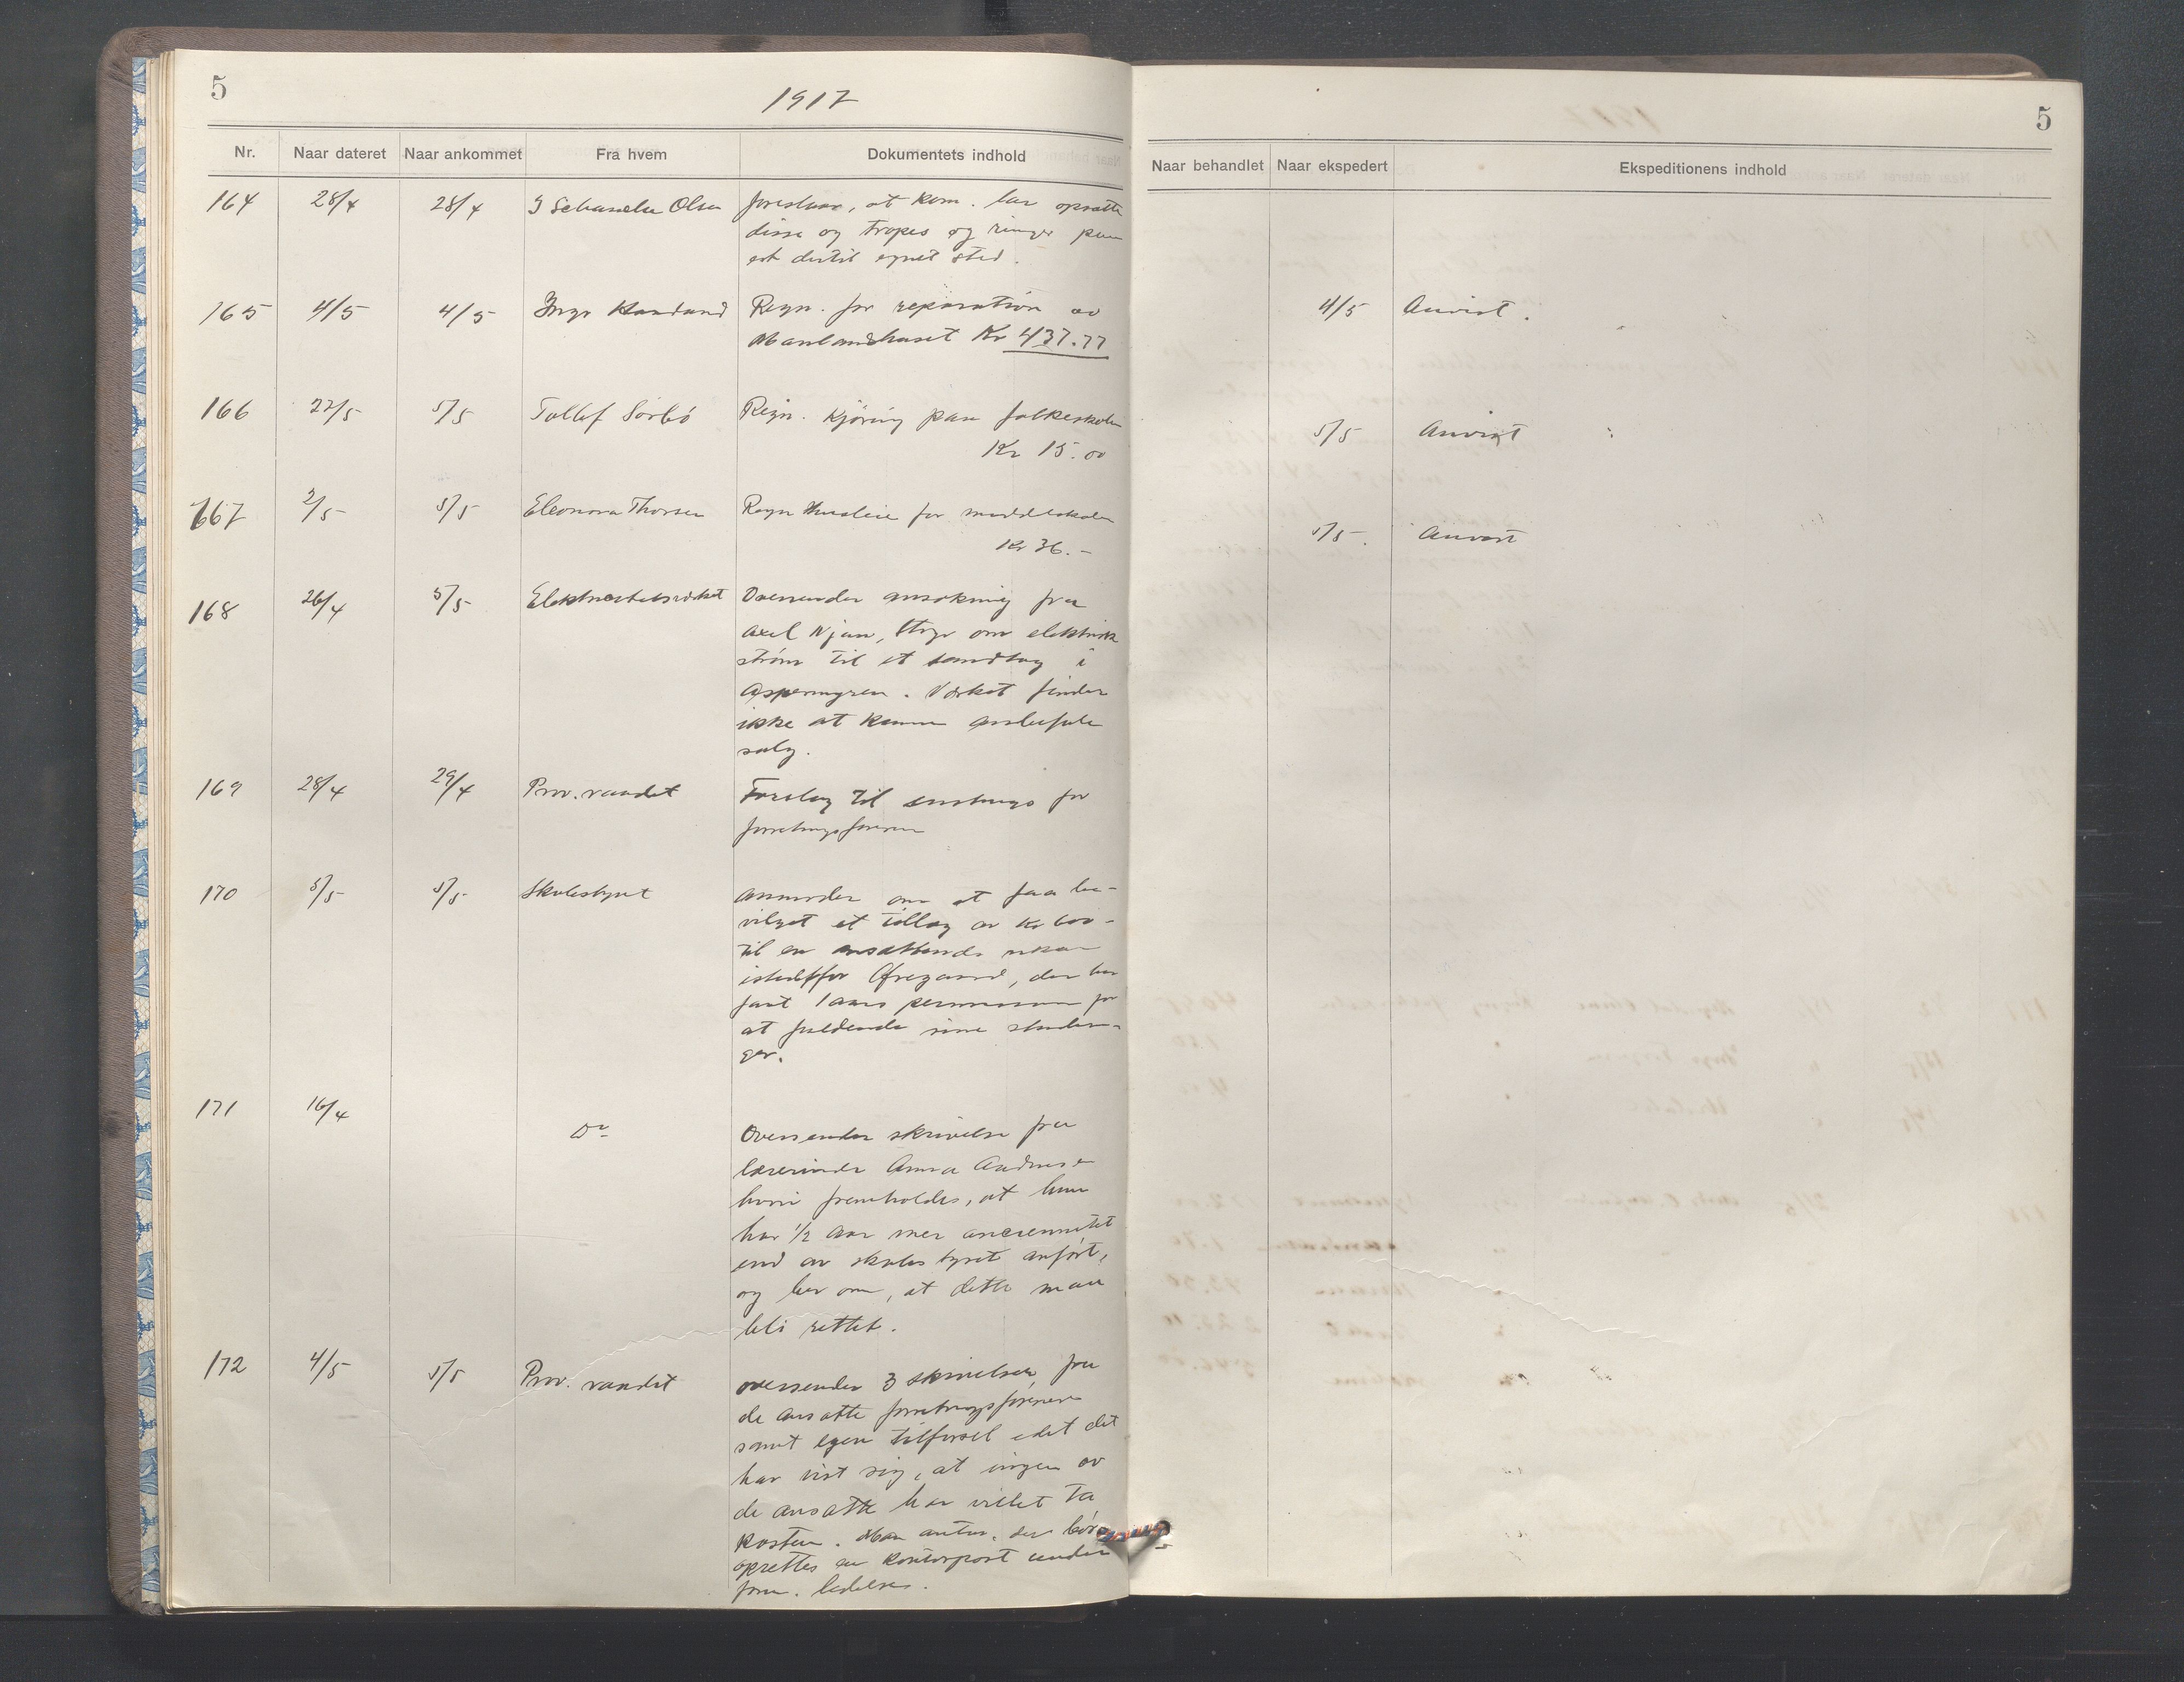 5
1917
Nr. Naar dateret Naar ankommet Fra hvem Dokumentets indhold
164 28/4 28/4 J Olsen foreslaar, at kom. lar opsætte
disse og tropes og ringe paa
et dertil egnet sted.
165 4/5 4/5 Regn. for reparation av
Kr 437.77
166 22/5 5/5 Tollef Sørbö Regn. Kjøring paa folkeskolen
Kr 15.00
167 2/5 5/5 Eleonora Thorsen Regn Husleie for middelskolen
Kr 36.-
168 26/4 5/5 Elektricitetsverket Oversender ansökning fra
Axel Njaa, om elektrisk
ström til et sandtag i
Aspemyren. Verket finder
ikke at kunne anbefale
salg.
169 28/4 29/4 Prov. raadet Forslag til instruks for
forretningsföreren
170 5/5 5/5 Skolestyret Anmoder om at faa be-
vilget et tillæg av Kr 600-
til en ansættende vikar
istedetfor , der har
faat 1 aars permission for
at fuldende sine studerin-
ger.
171 16/4 Do Oversender skrivelse fra
lærerinde Anna Andersen
hvori fremholdes, at hun
har 1/2 aar mer anciennitet
end av skolestyret anfört,
og ber om, at dette maa
bli rettet.
172 4/5 5/5 Prov. raadet oversender 3 skrivelser fra
de ansatte forretningsförere
samt egen tilförsel idet det
har vist sig, at ingen av
de ansatte har villet ta
posten. Man antar, der bör
oprettes en kontorpost under
form. ledelse.
5
Naar behandlet Naar ekspedert Ekspeditionens indhold
4/5 Anvist.
5/5 Anvist
5/5. Anvist